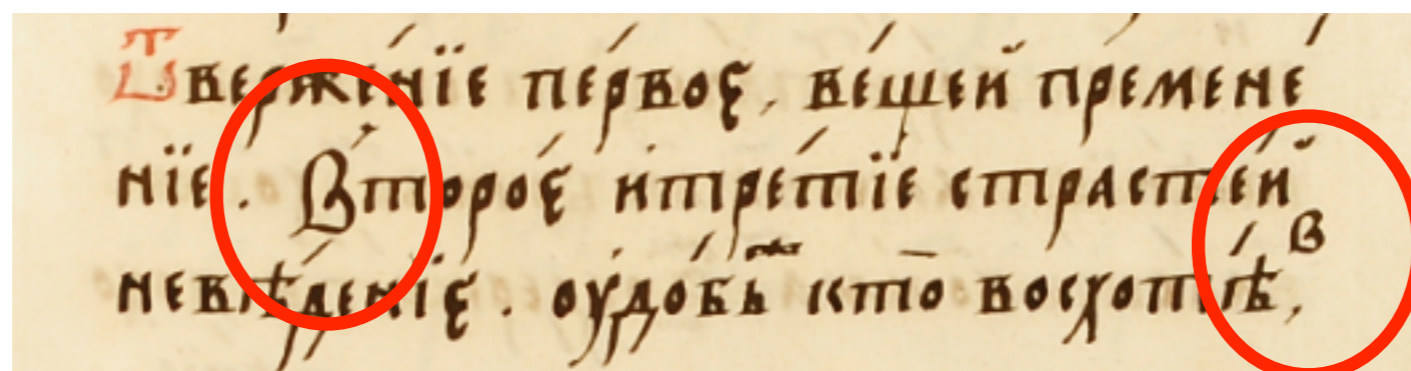 Ѿверже́нїе пе́рвоє, ве́щей пре́мене́
нїе. Второ́є и҆тре́тїе страсте́й
невѣ́денїє. оу҆до́бь кто восхотѣ́в,